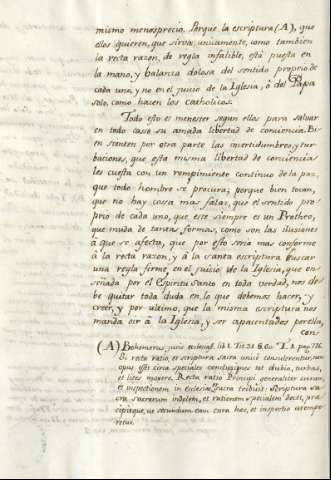 mismo menosprecio. Porque la escriptura (A), que
ellos quieren, que sirva unicamente, como tambien
la recta razon, de regla infalible, està puesta en
la mano, y balanza dolosa del sentido proprio de
cada uno, y no en el juicio de la Iglesia, ò del Papa
solo, como hacen los catholicos.
Todo esto es menester segun ellos para salvar
en todo caso su amada libertad de conciencia. Bi
en sienten por otra parte las incertidumbres, y tur
baciones, que esta misma libertad de conciencia
les cuesta con un rompimiento continuo de la paz,
que todo hombre se procura; porque bien tocan,
que no hay cosa mas falaz, que el sentido pro
prio de cada uno, que este siempre es un Protheo,
que muda de tantas formas, como son las ilusiones
à que se afecta, que por esto seria mas conforme
à la recta razon, y à la santa escriptura buscar
una regla ferme, en el juicio de la Iglesia, que en
señada por el Espiritu Santo en toda verdad, nos de
be quitar toda duda en lo que debemos hacer, y
creer, y por ultimo, que la misma escriptura nos
manda oir à la Iglesia, y ser apacentados por ella,
con
(A) Bohemerus, juris eclesiast. lib. 1. Tit. 31. §. 60. T. 1. pag. 776.
Si rata ratio, et scriptura sacra unice consulerentur, non
opus esset circa speciales conclusiones tot dubia, turbas,
et lites movere. Recta ratio Principi generaliter curam,
et inspectionem in eclesia Sacra tribuit: Scriptura sa
cra sacrorum indolem, et rationem specialem docet, præ
cipitque, ut secundum eam cura hæc, et inspectio atempe
retur.